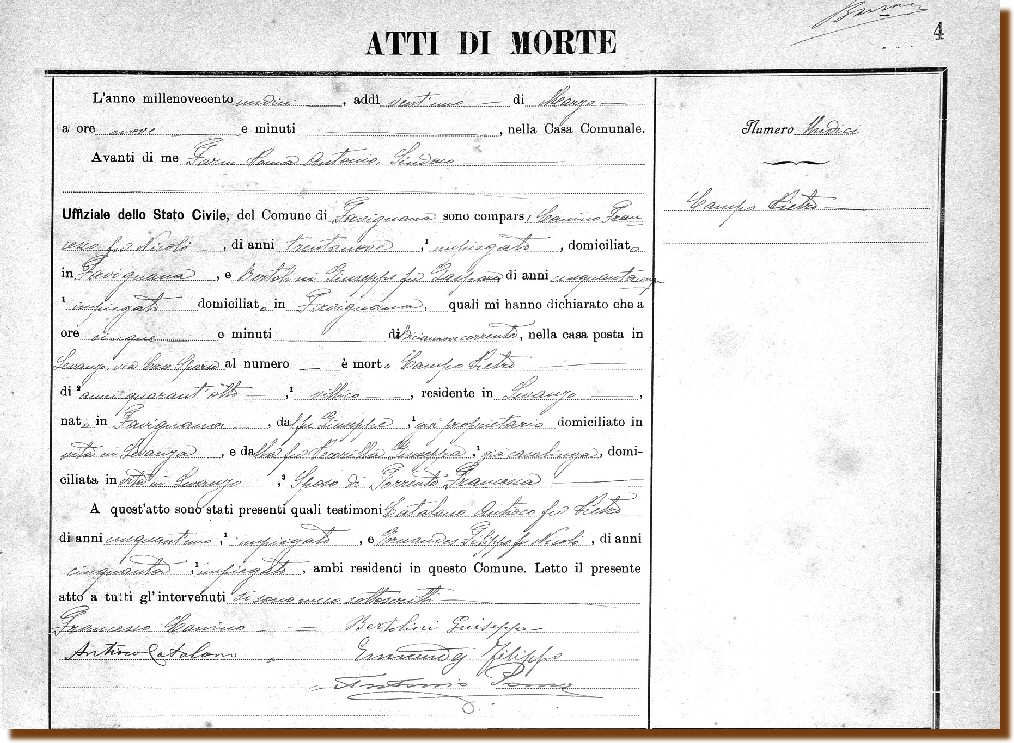 4
ATTI DI MORTE
L'anno millenovecento undici, addì ventuno di Marzo
a ore nove e minuti, nella Casa Comunale.
Numero Undici
Avanti di me Antonio, Sindaco
Campo Pietro
Uffiziale dello Stato Civile, del Comune di Favignana sono compars, Canino Fran
cesco fu Nicolò, di anni trentanove, impiegato, domiciliato
in Favignana, e Bertolini Giuseppe fu di anni
impiegato domiciliato in Favignana, quali mi hanno dichiarato che a
ore cinque e minuti di corrente, nella casa posta in
Levanzo, via al numero è morto Campo Pietro
di anni quarant'otto, residente in Levanzo,
nato in Favignana, dal fu Giuseppe, già proprietario domiciliato in
vita in Levanzo, e dalla fu Giuseppa, già casalinga, domi-
ciliata in vita in Levanzo, Sposo di Francesca
A quest'atto sono stati presenti quali testimoni Catalano Antioco fu Pietro
di anni cinquantuno, impiegato, e Filippo fu Nicolò, di anni
cinquanta, impiegato, ambi residenti in questo Comune. Letto il presente
atto a tutti gl'intervenuti si sono meco sottoscritti
Francesco Canino Bertolini Giuseppe
Antioco Catalano Filippo
Antonio